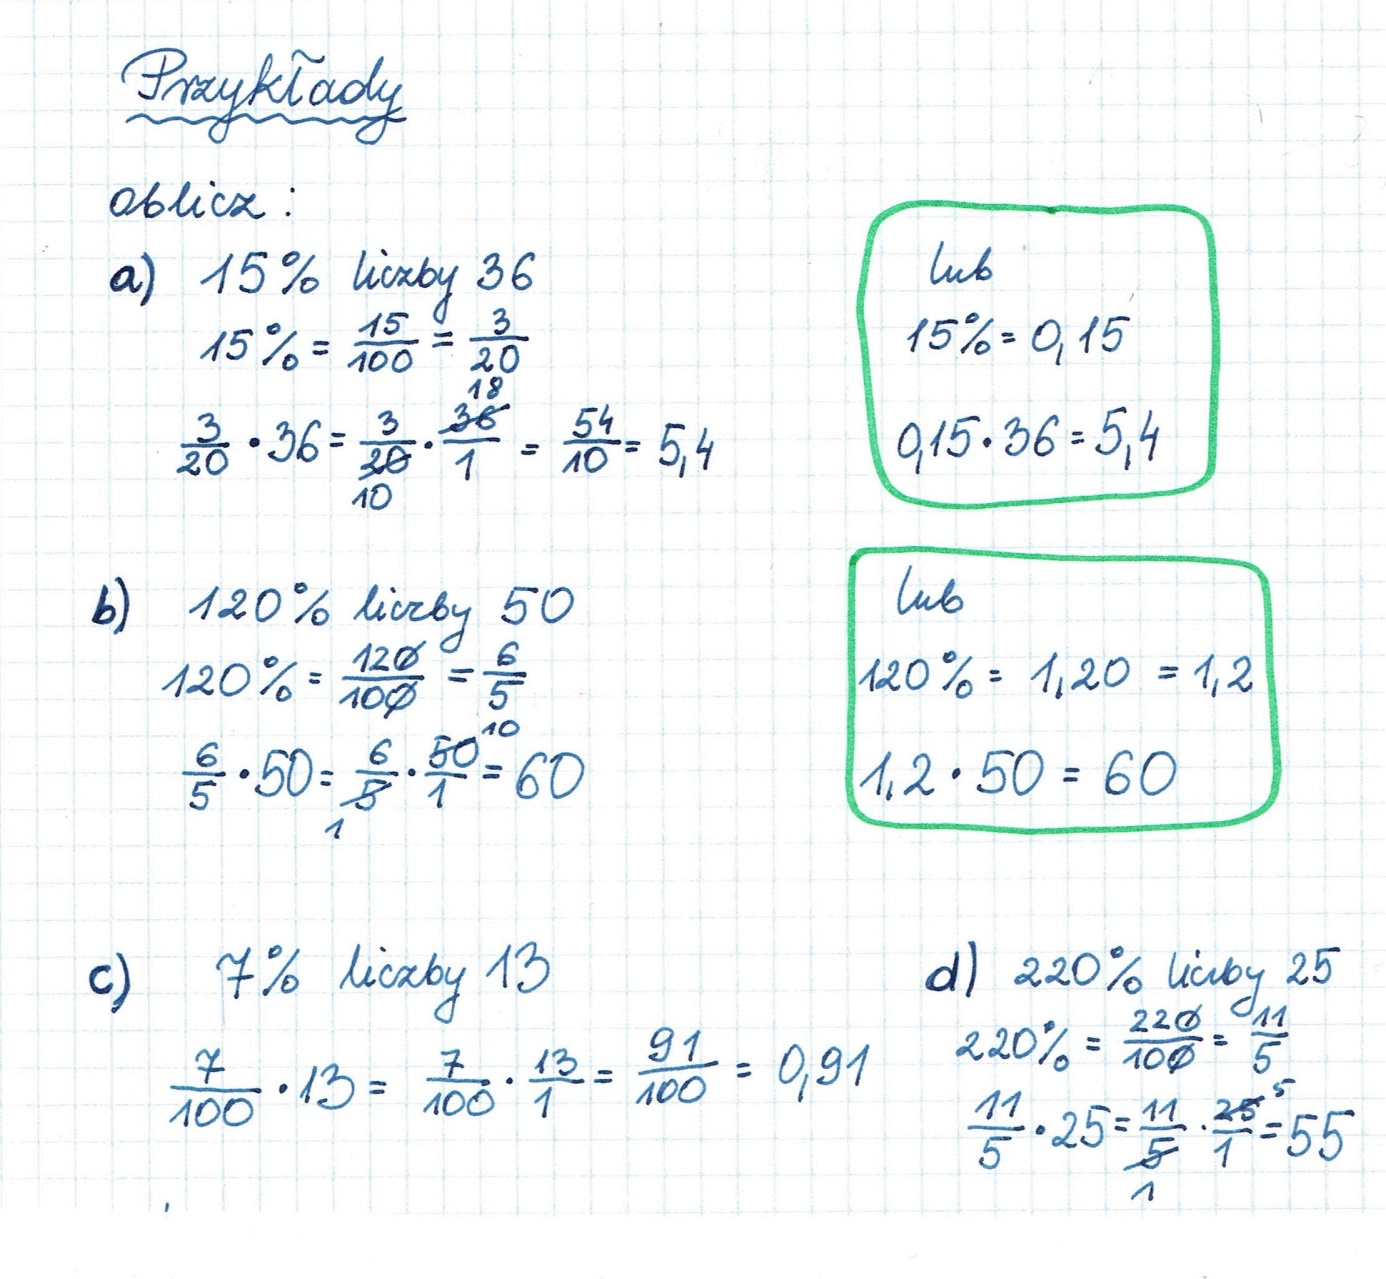 Przykłady
oblicz :
a) 15% liczby 36
15% = 15/100 = 3/20
3/20 · 36 = 3/20 · 36/1 = 54/10 = 5,4
18
10
lub
15% = 0,15
0,15 · 36 = 5,4
b) 120% liczby 50
120% = 120/100 = 6/5
6/5 · 50 = 6/5 · 50/1 = 60
10
1
lub
120% = 1,20 = 1,2
1,2 · 50 = 60
c) 7% liczby 13
7/100 · 13 = 7/100 · 13/1 = 91/100 = 0,91
d) 220% liczby 25
220% = 220/100 = 11/5
11/5 · 25 = 11/5 · 25/1 = 55
5
1